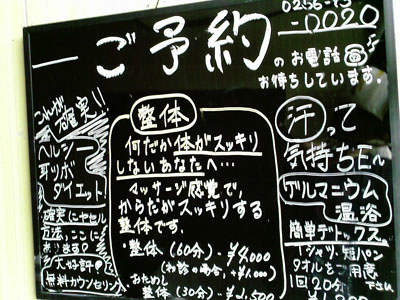 ご予約
のお電話
お待ちしています。
-0020
こんなに
確実!!
ヘルシー
耳ツボ
ダイエット
確実にヤセル
方法、ここに
あります?
大好評
無料カウンセリング
整体
何だか体がスッキリ
しないあなたへ…
マッサージ感覚で、
からだがスッキリする
整体です。
・整体(60分)-¥4,000
(初診の場合、+¥1,000)
おためし
整体(30分)-¥2,500
汗って
気持ちE~
ゲルマニウム
温浴
簡単デトックス。
Tシャツ、短パン
タオルをご用意
下さい
1回20分